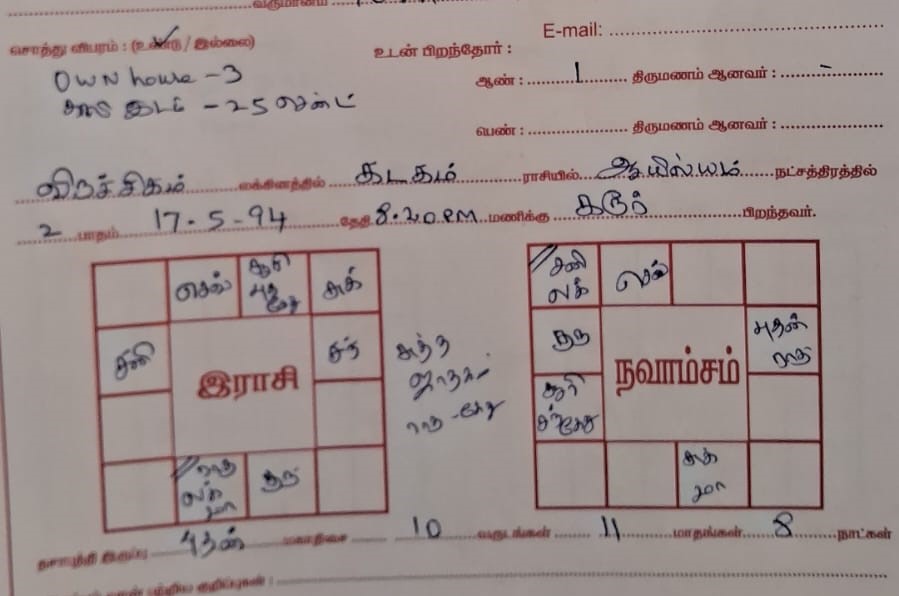 வருமானம்
E-mail:
சொத்து விபரம் : (உண்டு / இல்லை) உடன் பிறந்தோர் :
OWN house - 3
ஆண் : 1 திருமணம் ஆனவர் : -
இடம் - 25 சென்ட்
பெண் : திருமணம் ஆனவர் :
விருச்சிகம் லக்கினத்தில் கடகம் ராசியில் ஆயில்யம் நட்சத்திரத்தில்
2 பாதம் 17-5-94 தேதி 8.20 PM மணிக்கு கரூர் பிறந்தவர்.
செவ் சூரி புத கேது சுக்
சனி சந்
இராசி
ராகு லக் மா குரு
சுத்த ஜாதகம்
ராகு - கேது
சனி லக் செவ்
குரு புதன் ராகு
நவாம்சம்
சூரி சந் கேது
சுக் மா
தசாபுத்தி இருப்பு புதன் மகாதிசை 10 வருடங்கள் 11 மாதங்கள் 8 நாட்கள்
பற்றிய குறிப்புகள் :